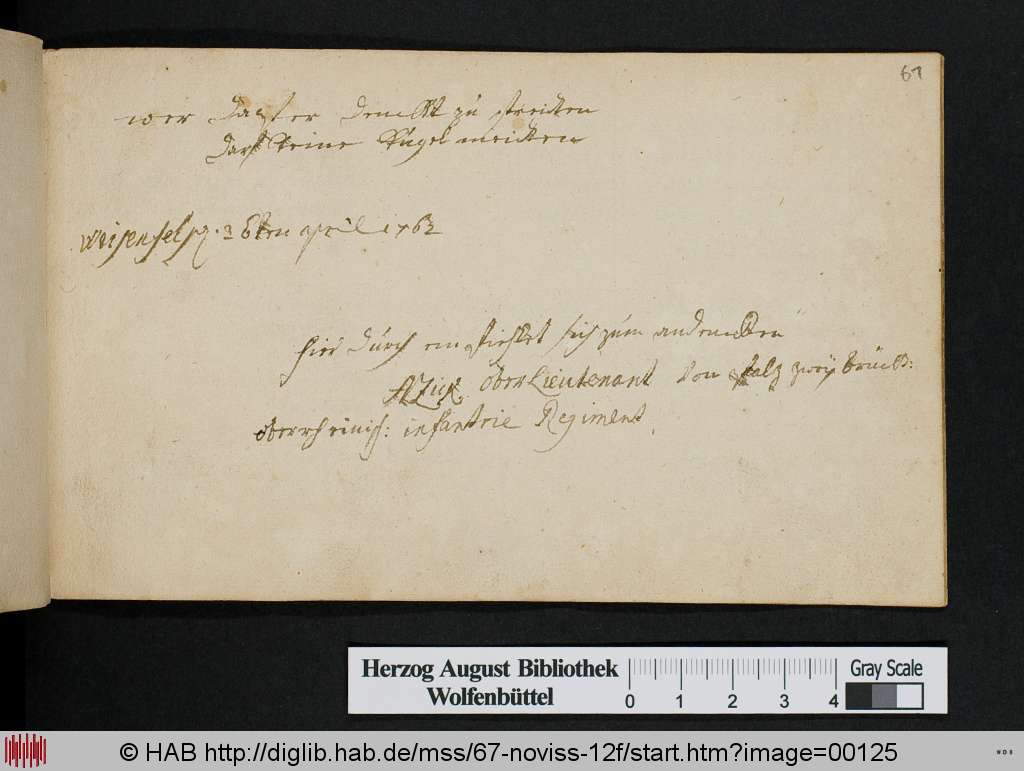 67
wer dapfer denckt zu streiten
darf keine Kugel meiden
Weisenfels 26ten april 1762
hier durch empfiehlet sich zum andencken
Ober Lieutenant von pfalz zweybrück:
oberrheinisch: infanterie Regiment
Herzog August Bibliothek
Wolfenbüttel
0 1 2 3 4
Gray Scale
© HAB http://diglib.hab.de/mss/67-noviss-12f/start.htm?image=00125